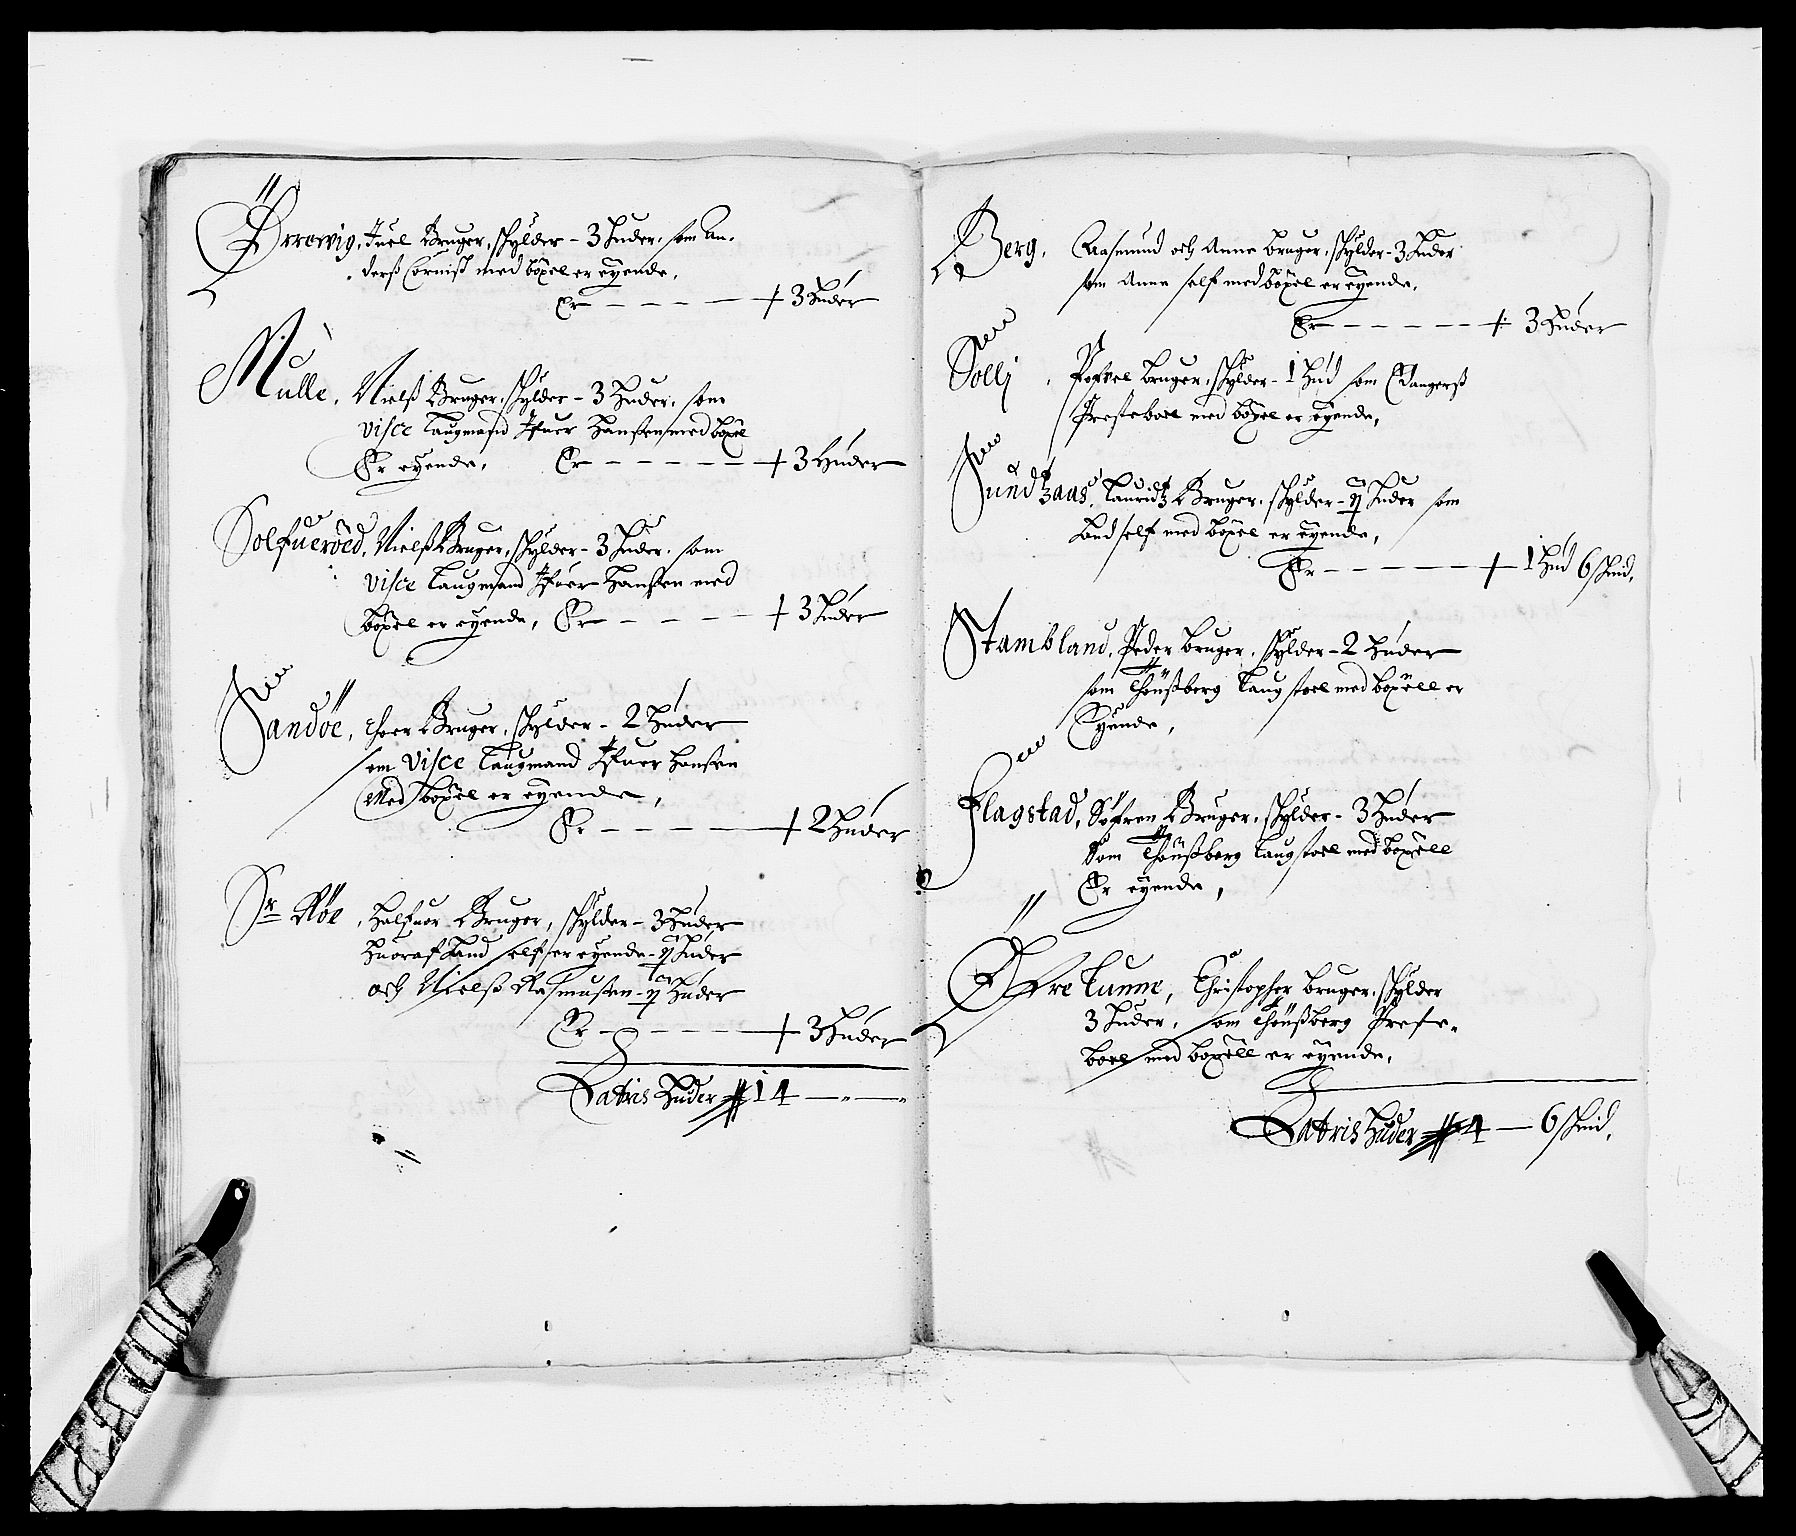 Ørrewig, Juel Bruger, skylder - 3 Huder, som An-
derß Corniss med böxel er eyende,
Er - - - - - + 3 Huder
Mulle, Nielß Bruger, skylder - 3 Huder, som
Visce Laugmand Ifuer Hanßen med böxel
Er eyende, Er - - - - - + 3 Huder
Solfueröed, Nielß Bruger, skylder - 3 Huder, som
Visce Laugmand Ifuer Hanßen med
böxel er eyende, Er - - - - + 3 Huder
Sandöe, Thoer Bruger, skylder - 2 Huder
som Visce Laugmand Ifuer Hanßen
Med böxel er eyende,
Er - - - - + 2 Huder
Sr Röe, Halfuor Bruger, skylder - 3 Huder
Huoraf Hand self er eyende - 1½ Huder
och Nielß Rasmußen - 1½ Huder
Er - - - - + 3 Huder
Latris Huder # 14 - " -
Berg, Aasmund och Anne bruger, skylder - 3 Huder
som Anne self med böxel er eyende,
Er - - - - - + 3 Huder
Solli, Pofuel bruger, skylder - 1 Hud som
Presteboel med böxel er eyende,
Sundtzaas, Lauridtz Bruger, skylder - 1½ Huder som
Hand self med böxel er eyende,
Er - - - - - + 1 Hud 6 skind,
Stambland, Peder bruger, skylder - 2 Huder
som Thönßberg Laugstoel med boxell er
Eyende,
Flagstad, Söfren Bruger, skylder - 3 Huder
Som Thönßberg Laugstoel med boxell
Er eyende,
Øfre Lunne, Christopher bruger, skylder
3 Huder, som Thönßberg Preste-
boel med boxell er eyende,
Latris Huder # 4 - 6 skind,